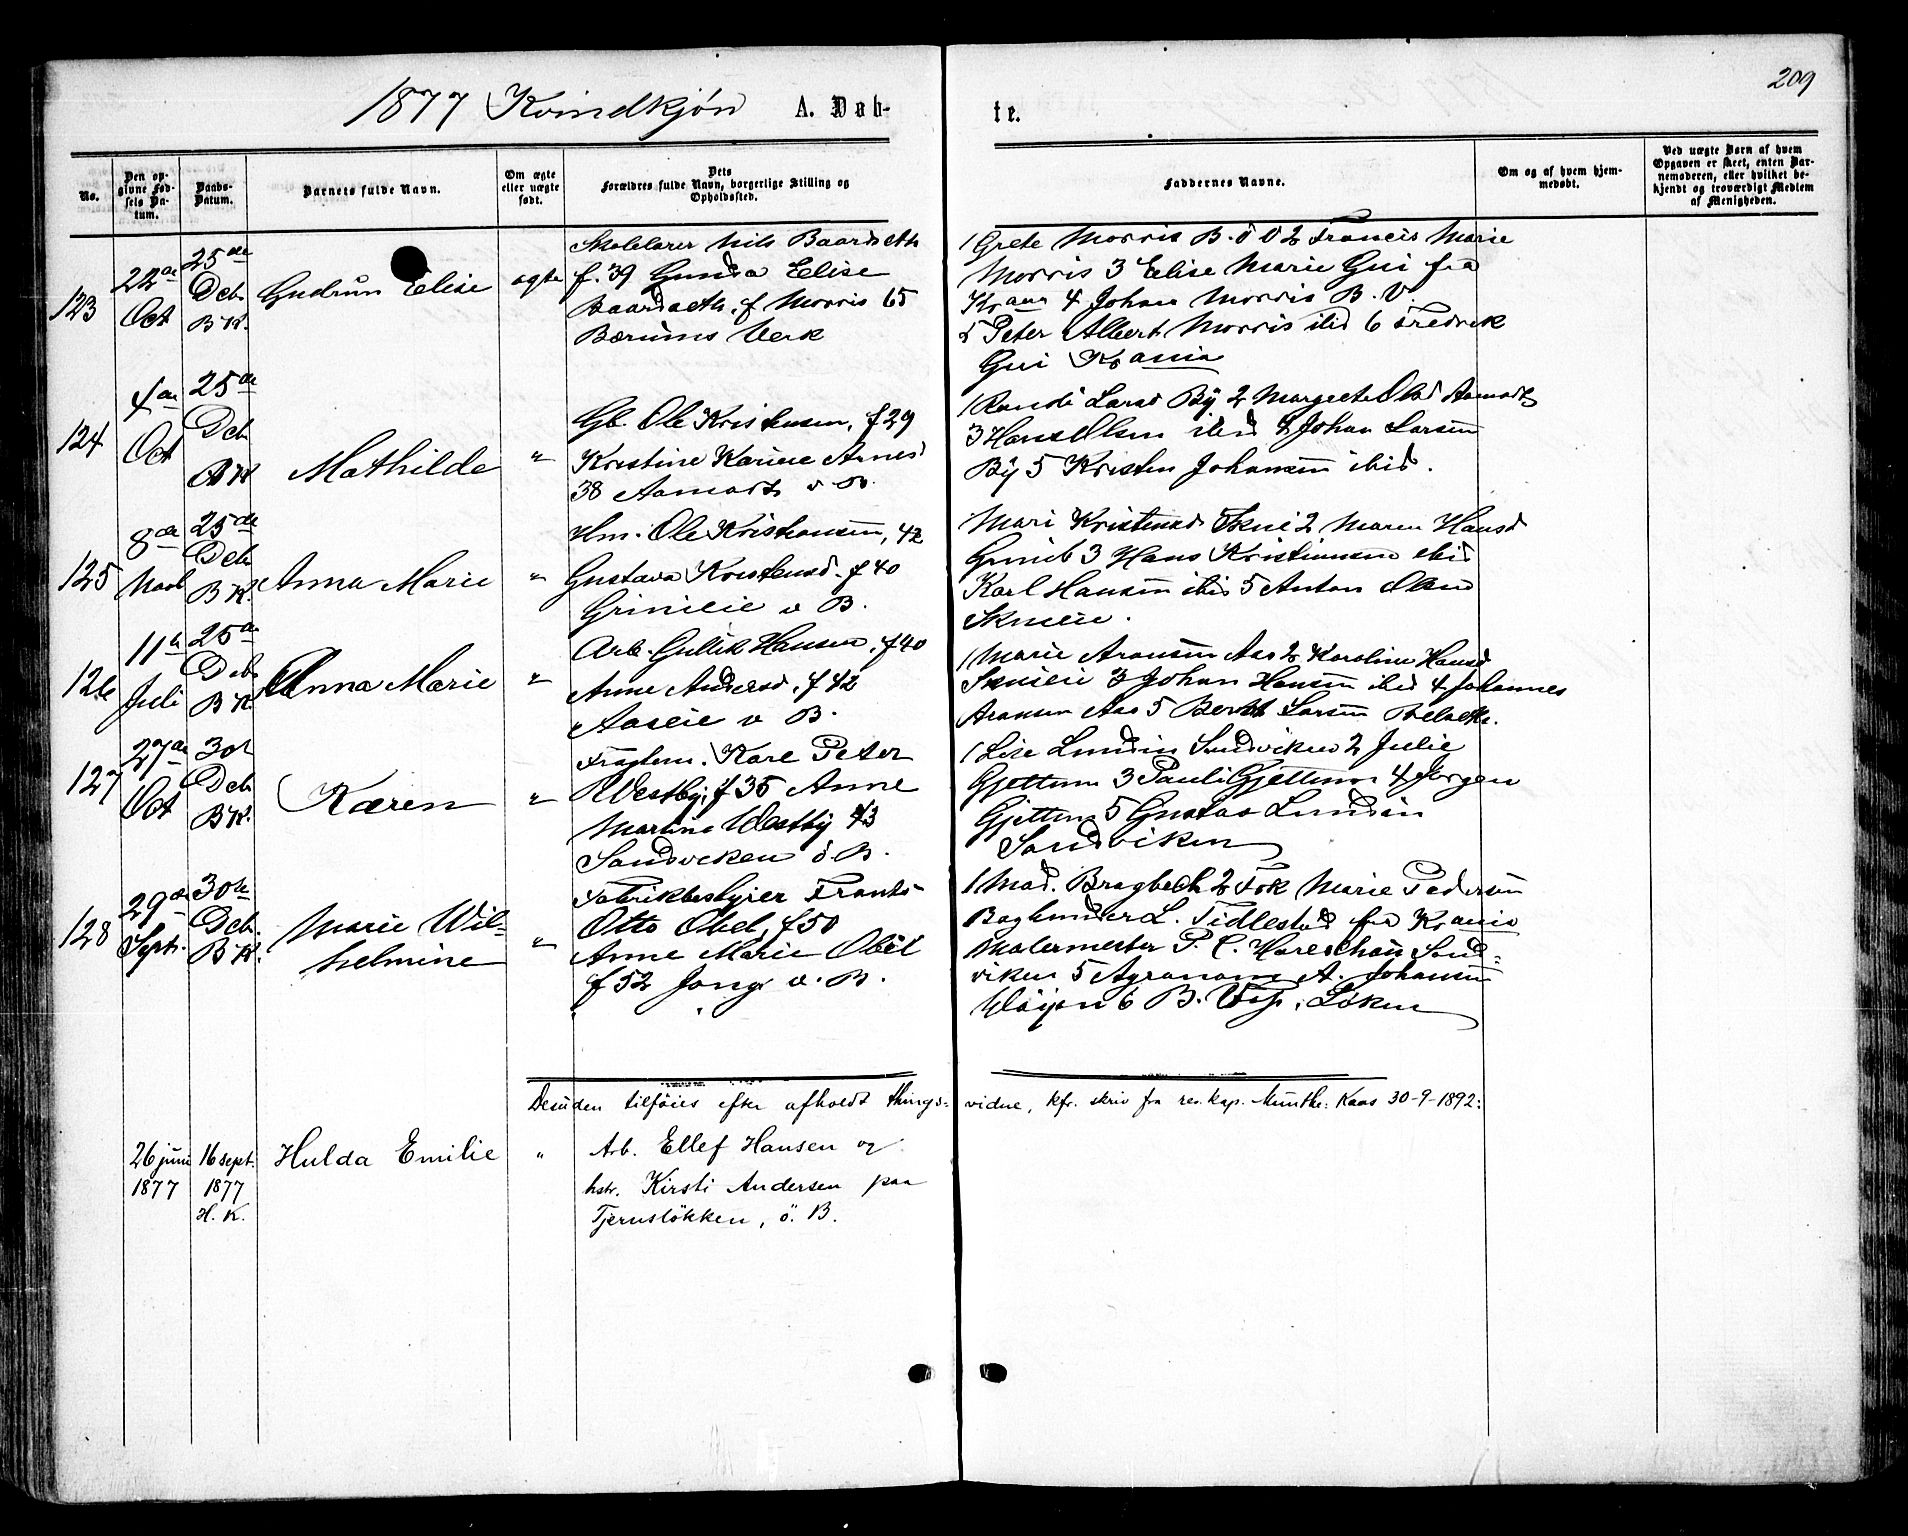 209
1877 Kvindkjøn A. Døb-
te.
No.
Den op-
givne Fød-
sels Da-
tum.
Daabs-
Datum.
Barnets fulde Navn.
Om ægte
eller uægte
født.
Dets
Forældres fulde Navn, borgerlige Stilling og
Opholdssted.
Faddernes Navne.
Om og af hvem hjem-
medøbt.
Ved uægte Børn af hvem
Opgaven er skeet, enten Bar-
nemoderen, eller hvilket be-
kjendt og troværdigt Medlem
af Menigheden.
123
22de
Oct
25de
Deb
B K.
Gudrun Elise
ægte
Skolelærer Nils Baardseth
f. 39 Gunda Elise
Baardseth, f Morris 65
Bærums Verk
1 Grete Morris B. ö V 2 Francis Marie
Morris 3 Elise Marie Gui fra
Kr ania 4 Johan Morris B. V.
5 Peter Albert Morris ibid 6 Fredrik
Gui Kr ania
124
4de
Oct
25de
Deb
Mathilde
"
Gb. Ole Kristensen, f 29
Kristine Karine Arnesd
38 Aamodt v B.
1 Randi Larsd By 2 Margrete Olsd Aamodt
3 Hans Olsen ibid 4 Johan Larsen
By 5 Kristen Johansen ibid.
125
8de
Novb
25de
Deb
B K.
Anna Marie
"
Hm. Ole Kristiansen, 42
Gustava Kristensd. f 40
Grinieie v B.
Mari Kristensd Skui 2 Maren Hansd
3 Hans Kristiansen ibid
Karl Hansen ibid 5 Anton Olsen
Skuieie.
126
11te
Juli
25de
Deb
B K
Anna Marie
"
Arb. Gullik Hansen, f 40
Anne Andersd, f 42
Aaseie v B.
1 Marie Aronsen Aas 2 Karoline Hansd
Skuieie 3 Johan Hansen ibid 4 Johannes
Aronsen Aas 5 Bernt Larsen
127
27de
Oct
30te
Deb
B K.
Karen
"
Karl Peter
Westby, f 35 Anne
Martine Westby 43
Sandviken ö B.
1 Lise Lundin Sandviken 2 Julie
Gjettum 3 Pauli Gjettum 4 Jørgen
Gjettum 5 Gustav Lundin
Sandviken
128
29de
Sept.
30te
Deb.
B K.
Marie Wil-
helmine
"
Fabrikbestyrer Frants
Otto Obel, f 50
Anne Marie Obel
f 52 Jong v. B.
1 Mad. Bragbech 2 Frk Marie Pedersen
L. Tidlestad fra Kr ania
Malermester P. C. Sand-
viken 5 Agronom A. Johansen
Wøyen 6 B. Løken
Desuden tilföies efter afholdt things-
vidne, kfr. skriv fra res. kap. Munthe-Kaas 30-9-1892:
26 juni
1877
16 sept.
1877
H. K.
Hulda Emilie
"
Arb. Ellef Hansen og
hstr. Kirsti Andersen paa
Tjernsløkken, ö. B.